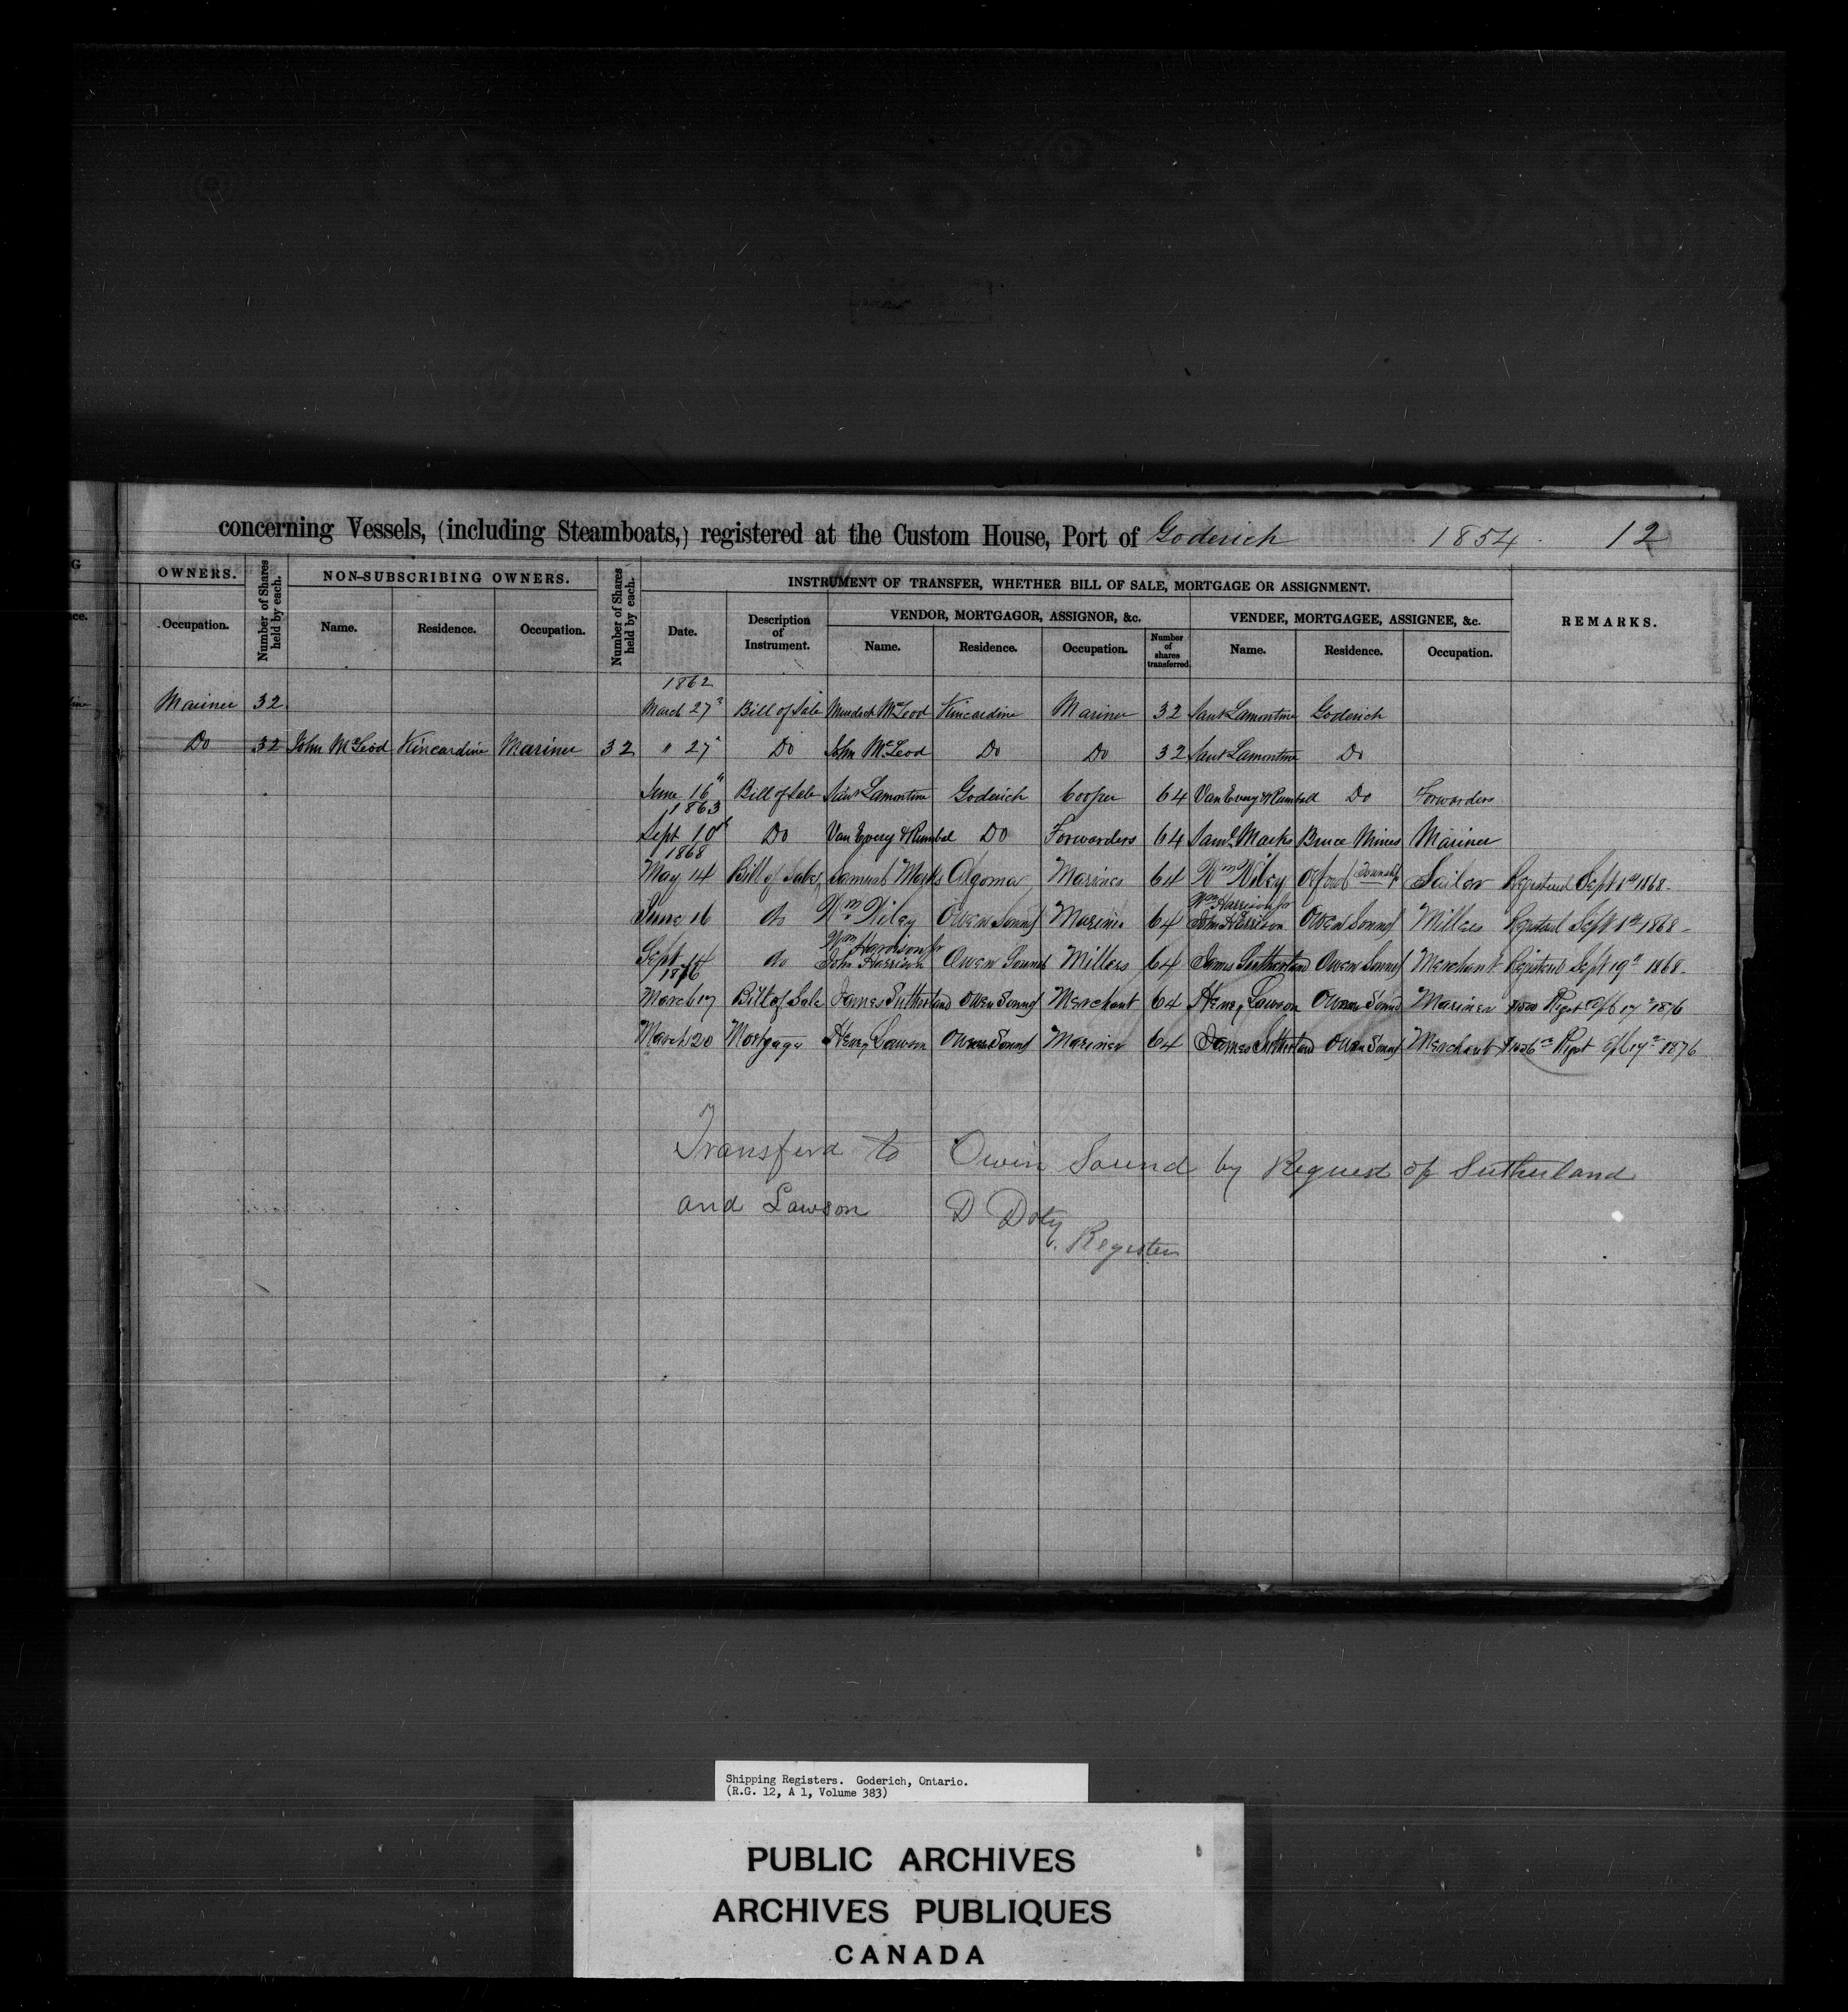 concerning Vessels, (including Steamboats,) registered at the Custom House, Port of Goderich 1854. 12
OWNERS. Number of Shares held by each. NON-SUBSCRIBING OWNERS. Number of Shares held by each. INSTRUMENT OF TRANSFER, WHETHER BILL OF SALE, MORTGAGE OR ASSIGNMENT. REMARKS.
VENDOR, MORTGAGOR, ASSIGNOR, &c. VENDEE, MORTGAGEE, ASSIGNEE, &c.
Occupation. Name. Residence. Occupation. Date. Description of Instrument. Name. Residence. Occupation. Number of shares transferred. Name. Residence. Occupation.
1862
Mariner 32 March 27 Bill of Sale Murdoch McLeod Kincardine Mariner 32 Lamontine Goderich
Do 32 John McLeod Kincardine Mariner 32 " 27 Do John McLeod Do Do 32 Lamontine Do
June 16 Bill of Sale Lamontine Goderich Cooper 64 Van Every & Rumball Do Forwarders
1863
Sept 10 Do Van Every & Rumbal Do Forwarders 64 Saml Marks Bruce Mines Mariner
1868
May 14 Bill of Sale Samuel Marks Algoma Mariner 64 Wm Wiley Township Sailor Registered Sept 1st 1868
June 16 do Wm Wiley Owen Sound Mariner 64 Wm Harrison Jr John Harrison Owen Sound Millers Registered Sept 1st 1868
Sept 14 do Wm Harrison Jr John Harrison Owen Sound Millers 64 James Sutherland Owen Sound Merchant Registered Sept 19th 1868
1876
March 17 Bill of Sale James Sutherland Owen Sound Merchant 64 Henry Lawson Owen Sound Mariner Regst 17 1876
March 20 Mortgage Henry Lawson Owen Sound Mariner 64 James Sutherland Owen Sound Merchant Regst 17 1876
Transferd to Owin Sound by Request of Sutherland
and Lawson D Doty
Register
Shipping Registers. Goderich, Ontario.
(R.G. 12, A 1, Volume 383)
PUBLIC ARCHIVES
ARCHIVES PUBLIQUES
CANADA